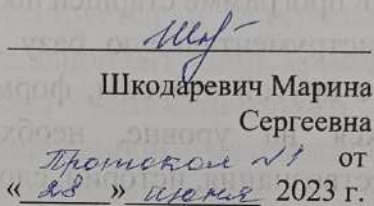 Шкодаревич Марина
Сергеевна
Протокол №1 от
«28» июня 2023 г.